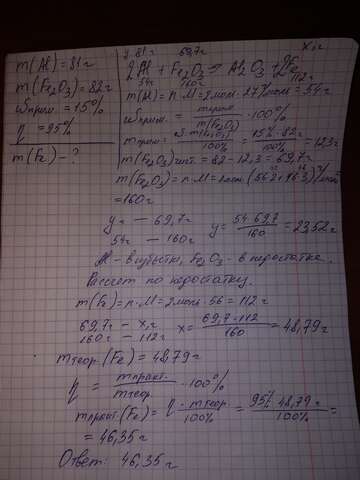 m(Al) = 81г
m(Fe2O3) = 82г
ωприм. = 15%
η = 95%
m(Fe) - ?
y г 81г 69,7г xг
2Al + Fe2O3 → Al2O3 + 2Fe
54г 160г 112г
m(Al) = n·M = 2моль·27г/моль = 54г
ωприм. = mприм./m(Fe2O3) · 100%
mприм. = ω·m(Fe2O3)/100% = 15%·82г/100% = 12,3г
m(Fe2O3)чист. = 82 - 12,3 = 69,7г
m(Fe2O3) = n·M = 1моль(56·2+16·3)г/моль
= 160г
yг — 69,7г y = 54·69,7/160 = 23,52г
54г — 160г
Al - в избытке, Fe2O3 - в недостатке.
Рассчет по недостатку.
m(Fe) = n·M = 2моль·56 = 112г
69,7г - xг x = 69,7·112/160 = 48,79г
160г - 112г
mтеор.(Fe) = 48,79г
η = mпракт./mтеор. ·100%
mпракт.(Fe) = η·mтеор./100% = 95%·48,79г/100% =
= 46,35г
Ответ: 46,35г